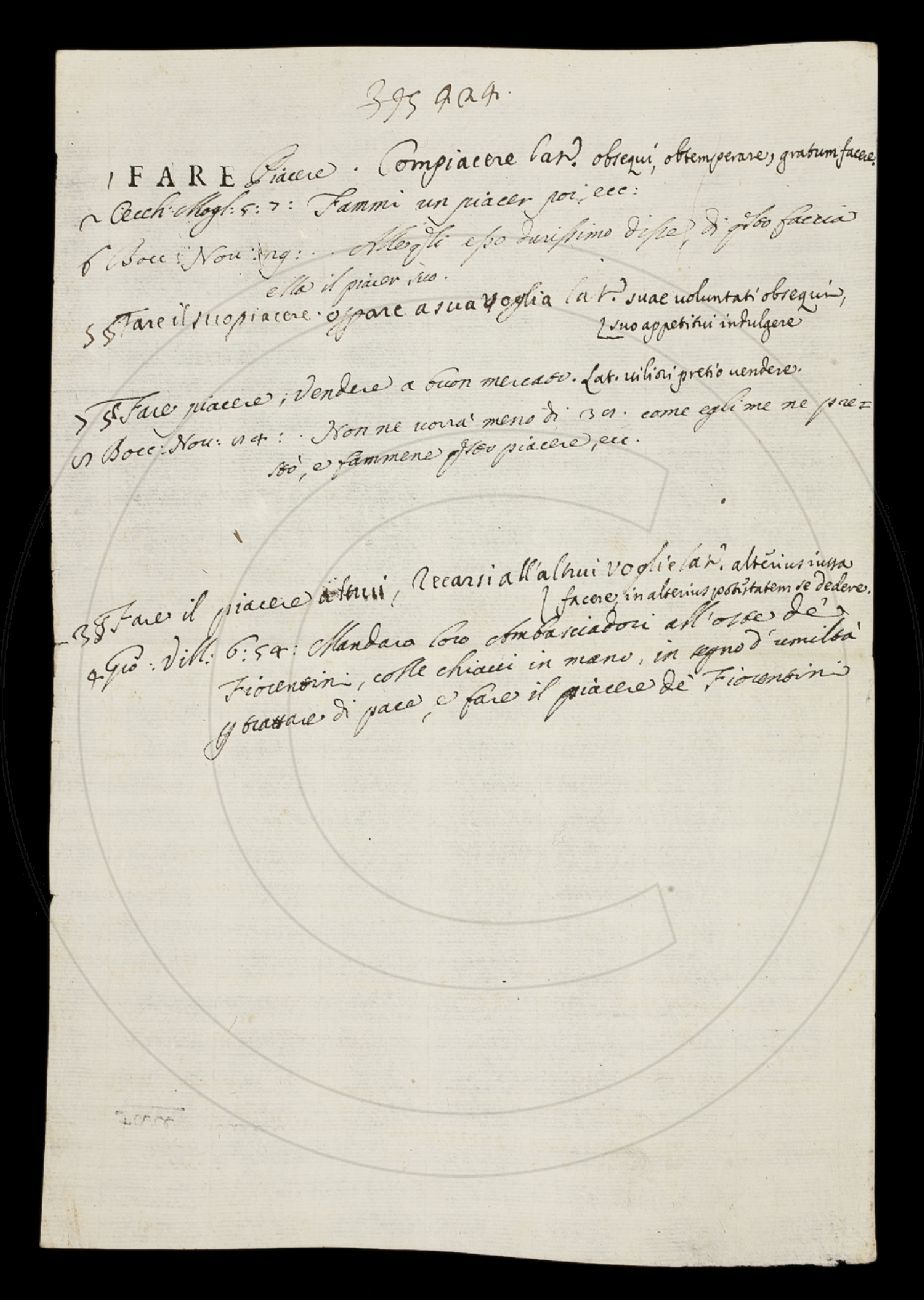 395 424.
1 FARE Piacere. Compiacere Lat. obsequi, obtemperare, gratum facere.
2 Cecch: Mogl: 5: 7: Fammi un piacer poi, ecc:
6 Bocc: Nov: : . Alle qli esso durissimo disse, di qsto faccia
ella il piacer suo.
5 § Fare il suo piacere. oprare a sua voglia Lat. suae voluntati obsequi,
suo appetitui indulgere
7 § Fare piacere, Vendere a buon mercato. Lat. viliori pretio vendere.
Bocc: Nov: : . Non ne vorrà meno di come egli me ne pre=
stò, e fammene qsto piacere, ecc.
3 § Fare il piacere altrui, Recarsi all'altrui voglie Lat. alterius iussa
facere, in alterius potestatem se dedere.
4 Gio: Vill: 6: 54: Mandaro loro Ambasciadori all'oste de'
Fiorentini, colle chiavi in mano, in segno d'umiltà
p trattare di pace, e fare il piacere de' Fiorentini